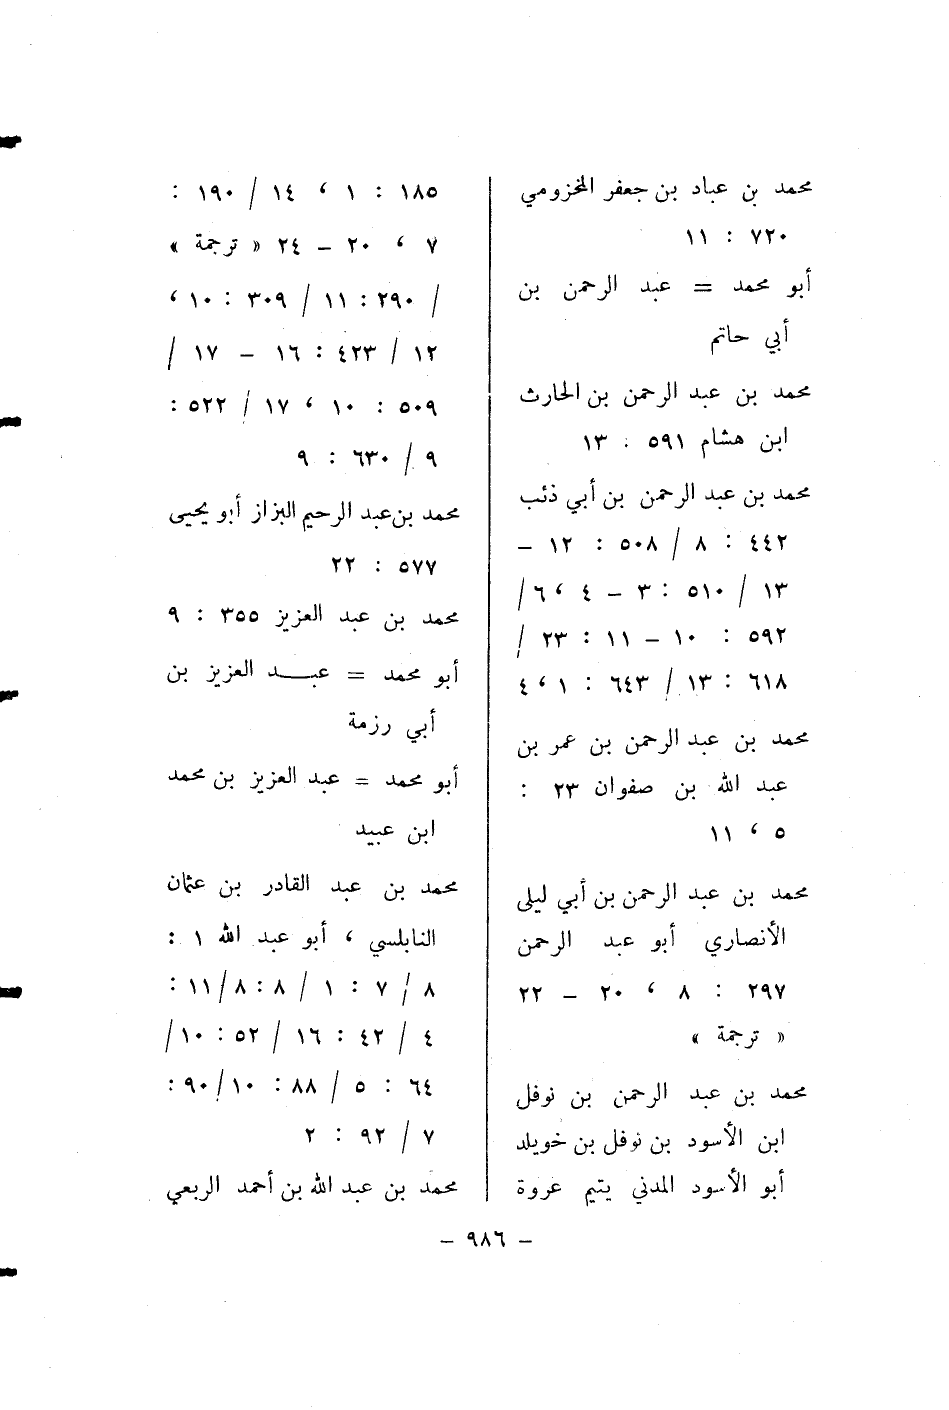 محمد بن عباد بن جعفر المخزومي
٧٢٠ : ١١
أبو محمد = عبد الرحمن بن
أبي حاتم
محمد بن عبد الرحمن بن الحارث
ابن هشام ٥٩١ : ١٣
محمد بن عبد الرحمن بن أبي ذئب
٤٤٢ : ٨ / ٥٠٨ : ١٢ –
١٣ / ٥١٠ : ٣ – ٤ ، ٦ /
٥٩٢ : ١٠ – ١١ : ٢٣ /
٦١٨ : ١٣ / ٦٤٣ : ١ ، ٤
محمد بن عبد الرحمن بن عمر بن
عبد الله بن صفوان ٢٣ :
٥ ، ١١
محمد بن عبد الرحمن بن أبي ليلى
الأنصاري أبو عبد الرحمن
٢٩٧ : ٨ ، ٢٠ – ٢٢
« ترجمة »
محمد بن عبد الرحمن بن نوفل
ابن الأسود بن نوفل بن خويلد
أبو الأسود المدني يتيم عروة
١٨٥ : ١ ، ١٤ / ١٩٠ :
٧ ، ٢٠ – ٢٤ « ترجمة »
/ ٢٩٠ : ١١ / ٣٠٩ : ١٠ ،
١٢ / ٤٢٣ : ١٦ – ١٧ /
٥٠٩ : ١٠ ، ١٧ / ٥٢٢ :
٩ / ٦٣٠ : ٩
محمد بن عبد الرحيم البزاز أبو يحيى
٥٧٧ : ٢٢
محمد بن عبد العزيز ٣٥٥ : ٩
أبو محمد = عبد العزيز بن
أبي رزمة
أبو محمد = عبد العزيز بن محمد
ابن عبيد
محمد بن عبد القادر بن عثمان
النابلسي ، أبو عبد الله ١ :
٨ / ٧ : ١ / ٨ : ٨ / ١١ :
٤ / ٤٢ : ١٦ / ٥٢ : ١٠ /
٦٤ : ٥ / ٨٨ : ١٠ / ٩٠ :
٧ / ٩٢ : ٢
محمد بن عبد الله بن أحمد الربعي
– ٩٨٦ –